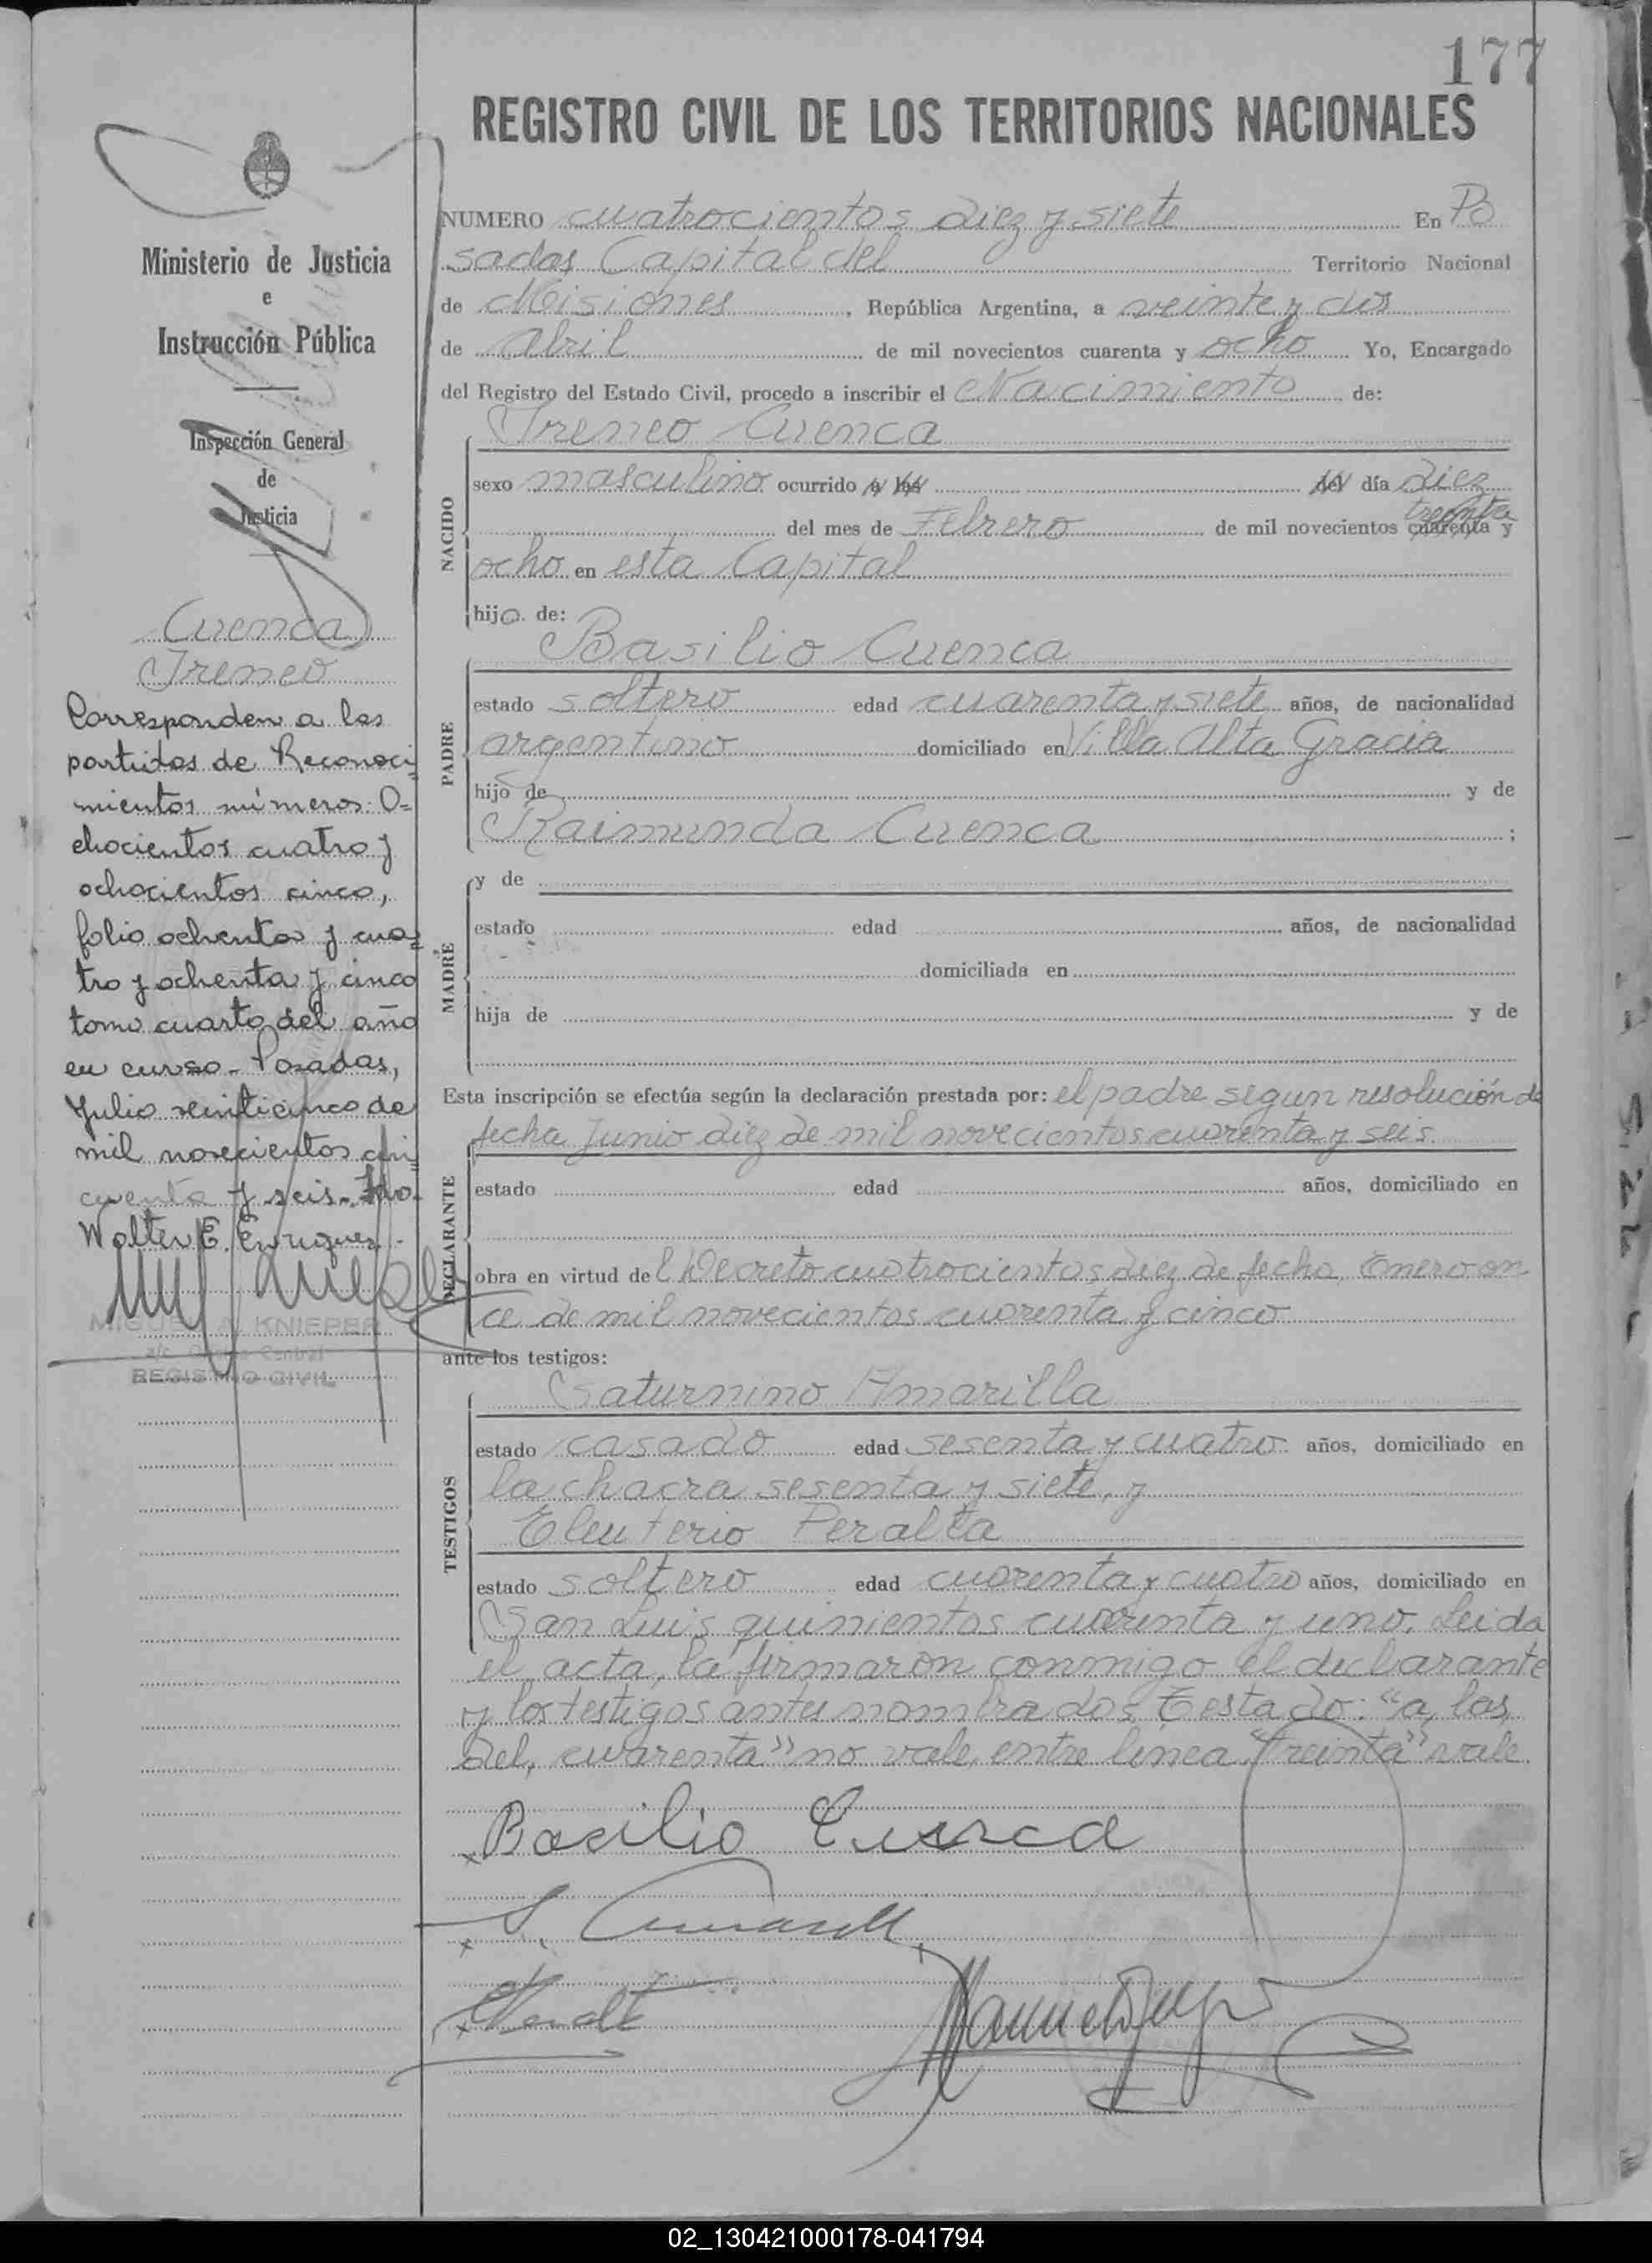 177
REGISTRO CIVIL DE LOS TERRITORIOS NACIONALES
Ministerio de Justicia
e
Instrucción Pública
Inspección General
de
Justicia
Cuenca
Ireneo
Corresponden a las
partidas de Reconoci-
mientos números: O=
chocientos cuatro y
ochocientos cinco,
folio ochenta y cua-
tro y ochenta y cinco
tomo cuarto del año
en curso - Posadas,
Julio veinticinco de
mil novecientos cin-
cuenta y seis - Fdo.
Walter E. Enriquez.
MIGUEL A. KNIEPER
a/c. Central
REGISTRO CIVIL
NUMERO cuatrocientos diez y siete En Po
sadas Capital del Territorio Nacional
de Misiones, República Argentina, a veinte y dos
de Abril de mil novecientos cuarenta y ocho Yo, Encargado
del Registro del Estado Civil, procedo a inscribir el Nacimiento de:
Ireneo Cuenca
NACIDO
sexo masculino ocurrido a las del día diez
treinta
del mes de Febrero de mil novecientos cuarenta y
ocho en esta Capital
hijo de:
Basilio Cuenca
PADRE
estado soltero edad cuarenta y siete años, de nacionalidad
argentino domiciliado en Villa Alta Gracia
hijo de y de
Raimunda Cuenca ;
y de
MADRE
estado edad años, de nacionalidad
domiciliada en
hija de y de
Esta inscripción se efectúa según la declaración prestada por: el padre segun resolución de
fecha Junio diez de mil novecientos cuarenta y seis
DECLARANTE
estado edad años, domiciliado en
obra en virtud del Decreto cuatrocientos diez de fecha Enero on
ce de mil novecientos cuarenta y cinco
ante los testigos:
Saturnino Amarilla
TESTIGOS
estado casado edad sesenta y cuatro años, domiciliado en
la chacra sesenta y siete, y
Eleuterio Peralta
estado soltero edad cuarenta y cuatro años, domiciliado en
San Luis quinientos cuarenta y uno. Leida
el acta, la firmaron conmigo el declarante
y los testigos antes nombrados. Testado: "a, las,
del, cuarenta" no vale, entre linea "treinta" vale
Basilio Cuenca
02_130421000178-041794